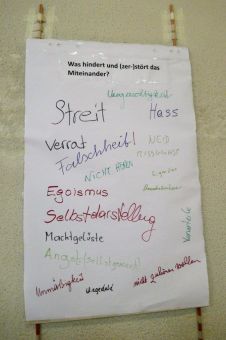 Was hindert und (zer-)stört das
Miteinander?
Ungerechtigkeit
Streit
Hass
Verrat
NEID
Falschheit!
MISSGUNST
NICHT HÖREN
Egoismus
Selbstdarstellung
Machtgelüste
Vorurteile
Angst (selbstgemacht)
Unmäßigkeit
Ungeduld
nicht zuhören wollen